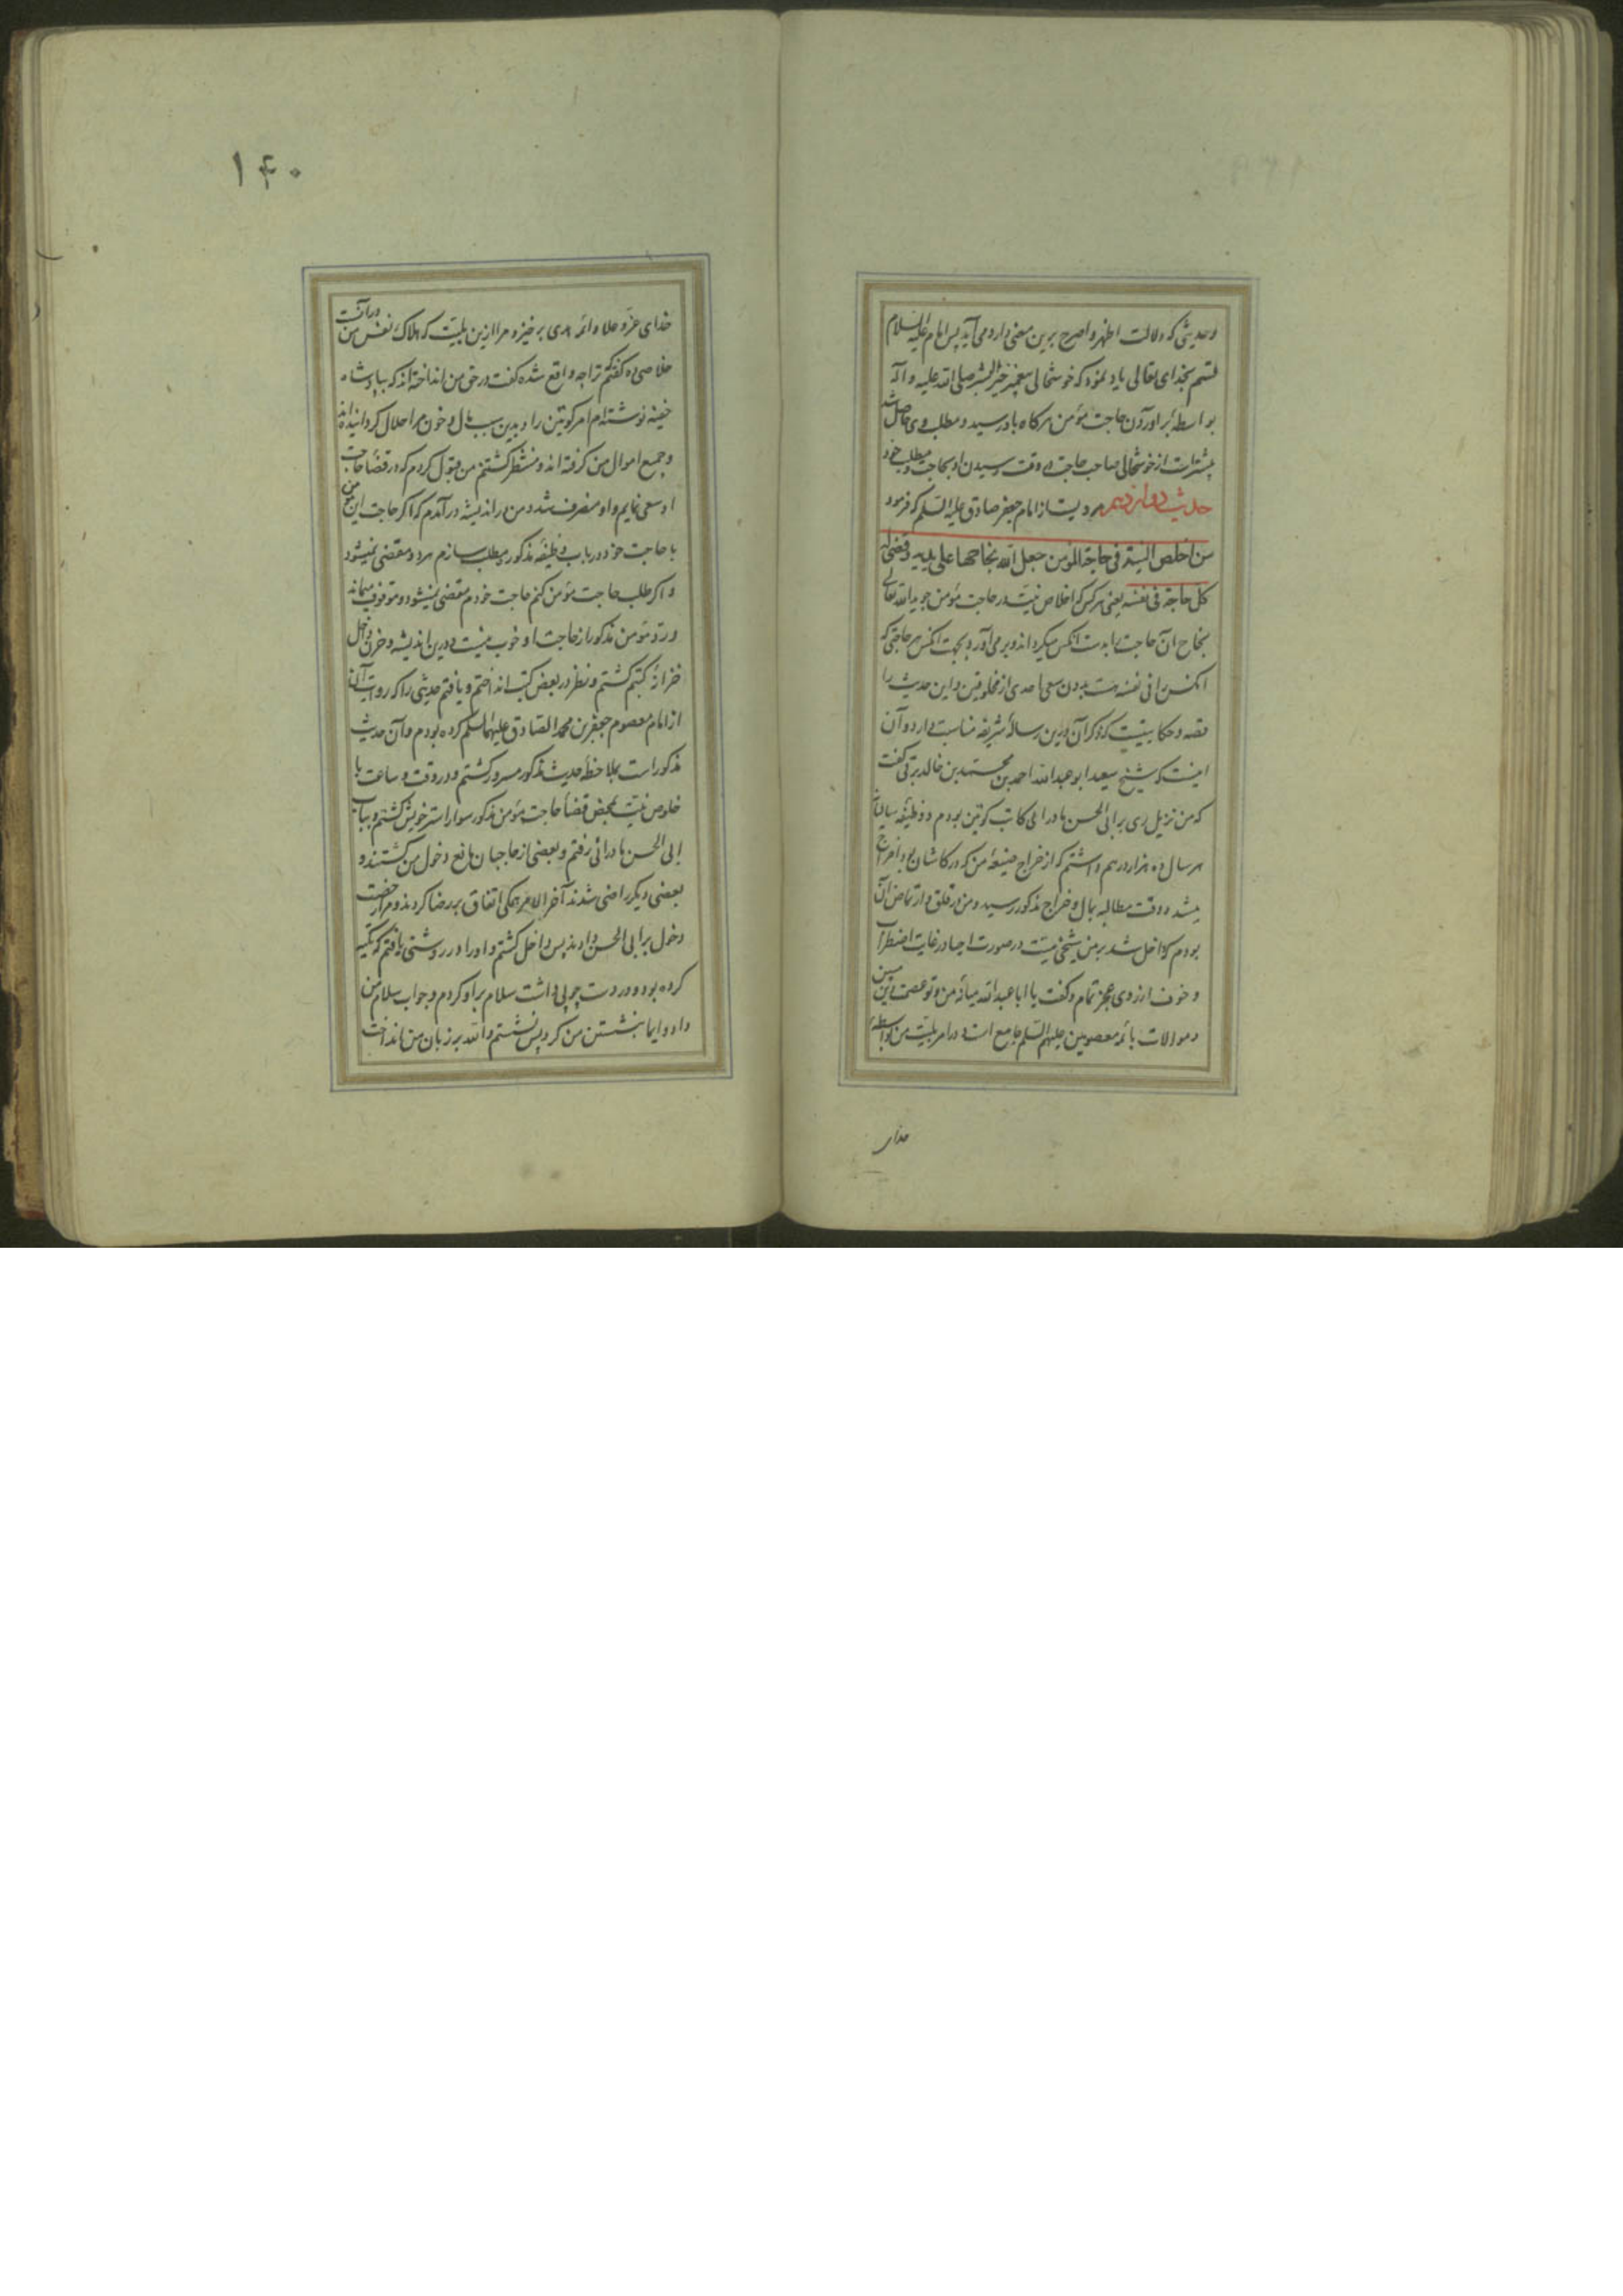 وحدیثی که دلالت اظهر و اصرح برین معنی دارد می آید پس امام علیه السلام
قسم بخدای تعالی یاد نمود که خوشحالی پیغمبر خیر البشر صلی الله علیه و آله
بواسطه بر اوردن حاجت مؤمن هرکاه باو رسید و مطلب وی حاصل شد
بیشتر است از خوشحالی صاحب حاجت در وقت رسیدن او بحاجت و مطلب خود
حدیث دوازدهم مرویست از امام جعفر صادق علیه السلم که فرمود
من اخلص النیة فی حاجة المؤمن جعل الله نجاحها علی یدیه و قضی له
کل حاجة فی نفسه یعنی هر کس که اخلاص نیت در حاجت مؤمن جوید الله تعالی
نجاح آن حاجت را بدست انکس میکرداند و برمی آورد بجهت انکس هر حاجتی که
انکس را فی نفسه هست بدون سعی احدی از مخلوقین و این حدیث را
قصه و حکایتیست که ذکر آن درین رساله شریفه مناسبت دارد و آن
اینست که شیخ سعید ابو عبد الله احمد بن محمد بن خالد برقی گفت
که من نزیل ری بر ابی الحسن مادرانی کاتب کوتین بودم و وظیفه سالیانه
هر سال ده هزار درهم داشتم که از خراج ضیعه من که در کاشان بود اخراج
میشد و وقت مطالبه بمال و خراج مذکور رسید و من در قلق و از تقاضای آن
بودم که داخل شد بر من شیخی میت در صورت احیا در غایت اضطراب
و خوف از روی عجز تمام و کفت یا ابا عبد الله میانه من و تو عصمت دین
و موالات بائمه معصومین علیهم السلم جامع است در امر بلیت من بواسطه
خدای
۱۴۰
خدای عز و علا و ائمه هدی برخیز و مرا ازین بلیت که هلاک نفس من در آنست
خلاصی ده کفتم ترا چه واقع شده کفت در حق من انداخته اند که بپادشاه
خفیه نوشته ام امر کوتین را و بدین سبب مال و خون مرا حلال کردانیده اند
و جمیع اموال من کرفته اند و منتظر کشتنم من قبول کردم که در قضا حاجت
او سعی نمایم و او منصرف شد و من در اندیشه در آمدم که اکر حاجت این مؤمن
با حاجت خود در باب وظیفه مذکور مطلب سازم هر دو مقضی نمیشود
و اکر طلب حاجت مؤمن کنم حاجت خودم مقضی نمیشود و موقوف میماند
و رد مؤمن مذکور از حاجت او خوب نیست درین اندیشه و حزن داخل
خزانه کتبم کشتم و نظر در بعض کتب انداختم و یافتم حدیثی را که روایت آنرا
از امام معصوم جعفر بن محمد الصادق علیهما السلم کرده بودم و آن حدیث
مذکور است بملاحظه حدیث مذکور مسرور کشتم و در وقت و ساعت با
خلوص نیت بمحض قضا حاجت مؤمن مذکور سوار استر خویش کشتم و بباب
ابی الحسن مادرانی رفتم و بعضی از حاجبان مانع دخول من کشتند و
بعضی دیکر راضی شدند آخر الامر همکی اتفاق بر رضا کردند و مرا رخصت
دخول بر ابی الحسن دادند پس داخل کشتم و او را در روشنی یافتم که تکیه
کرده بود و در دست چوبی داشت سلام بر او کردم و جواب سلام من
داد و ایما بنشستن من کرد پس نشستم و الله بر زبان من انداخت